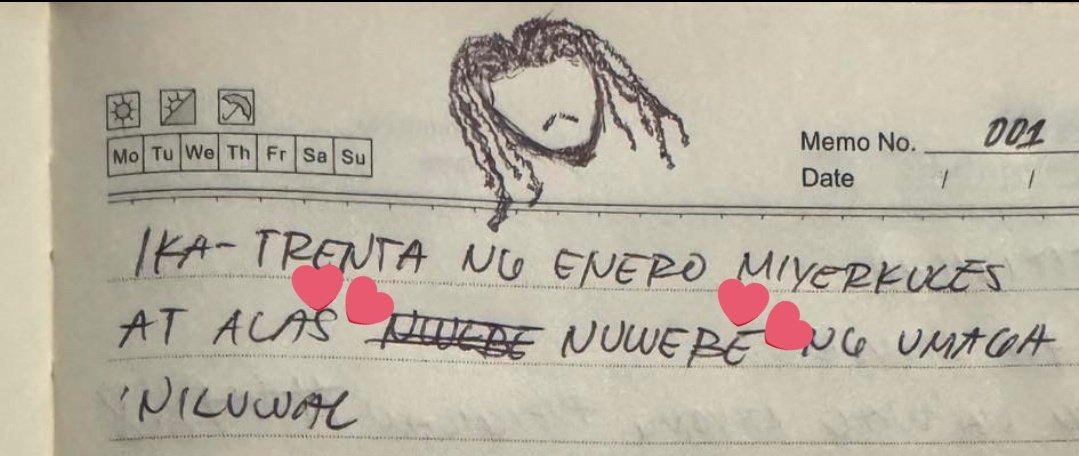 Mo Tu We Th Fr Sa Su
Memo No. 001
Date / /
IKA-TRENTA NG ENERO MIYERKULES
AT ALAS NUWEBE NUWEBE NG UMAGA
'NILUWAL